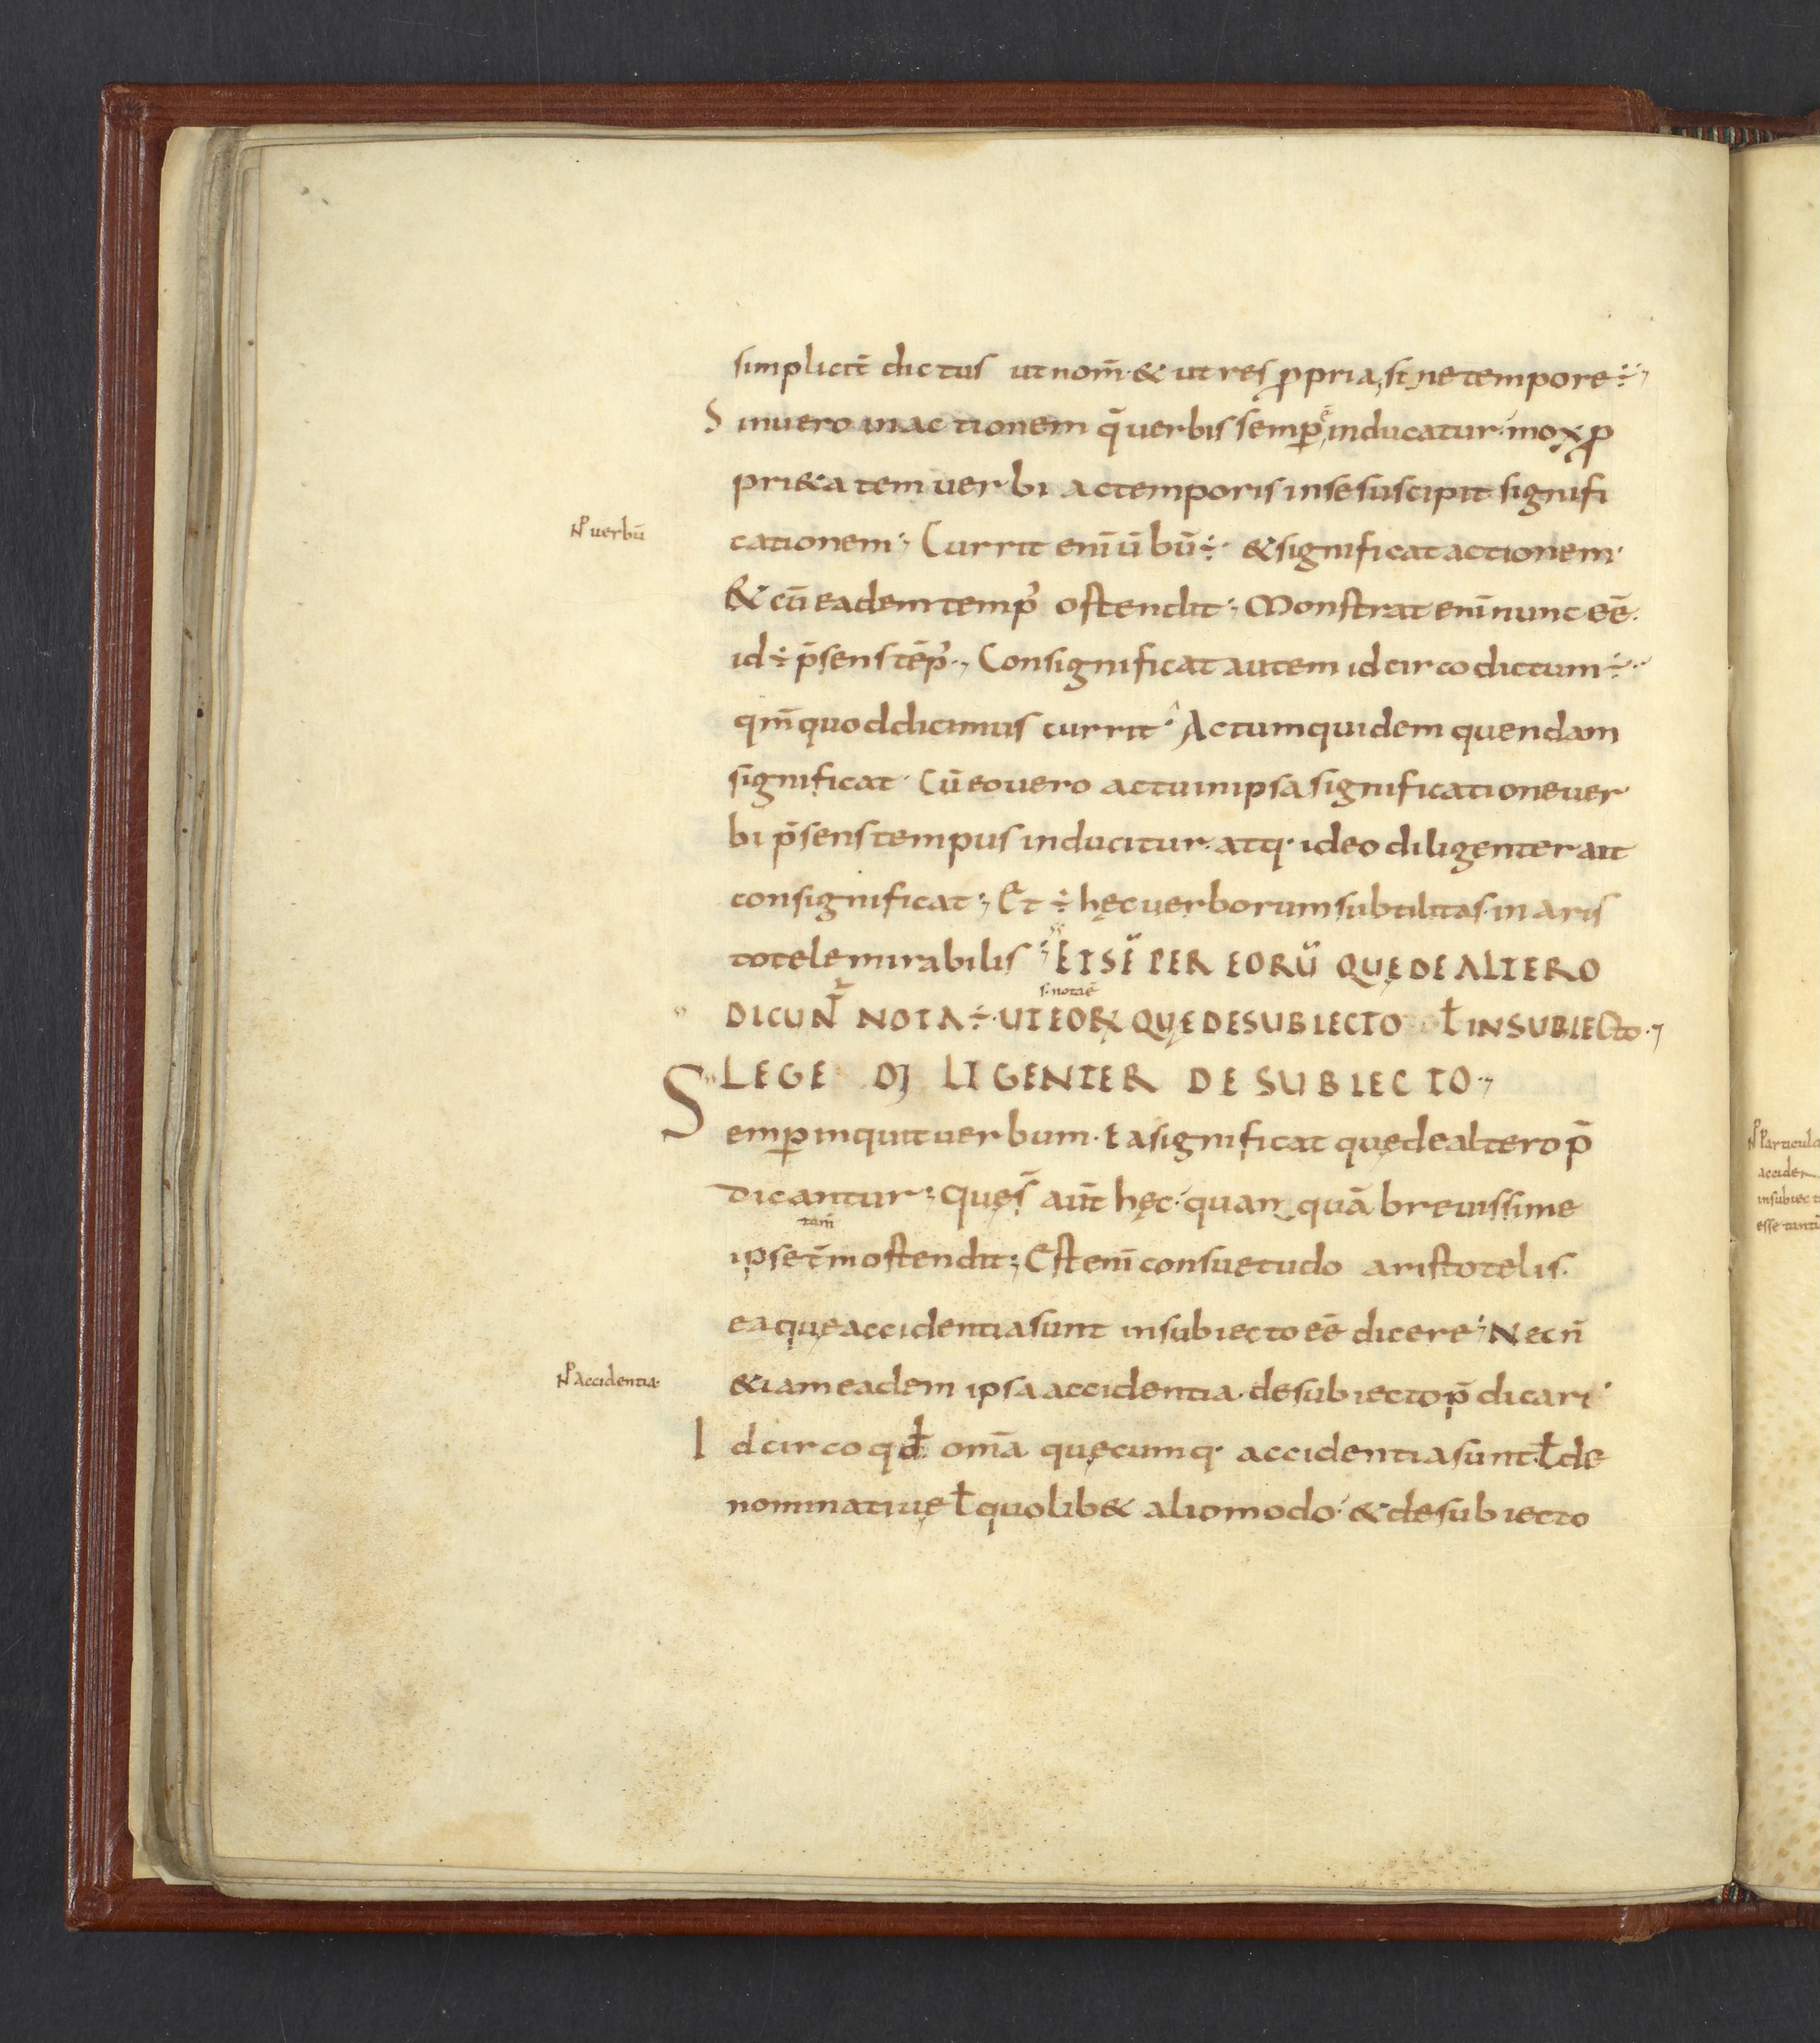 simpliciť dictus ut nom̄· & ut res ꝓpria, sine tempore÷
Sin uero in actionem q̄ uerbis semꝑ ē inducatur· mox ꝓ
pri&atem uerbi ac temporis in se suscipit signifi
N̄ uerbū
cationem; Currit eni̅ ūbū÷ & significat actionem·
& cū eadem temp᾽ ostendit; Monstrat eni̅ nunc eē̅·
id÷ p̄sens tēp᾽·, Consignificat autem idcirco dictum÷
qm̄ quod dicimus currit· Actum quidem quendam
significat· Cū eo uero actu in ipsa significatione uer
bi p̄sens tempus inducitur· atq· ideo diligenter ait
consignificat; Et ÷ hęc uerborum subtilitas· in aris
totele mirabilis; ET SĒ PER EORŪ QUĘ DE ALTERO
s· notāe
DICUNT̄ NOTA÷· UT EORꝜ QUĘ DE SUBIECTO ł IN SUBIECto·,
LEGE DILIGENTER DE SUBIECTO·,
Semꝑ inquit uerbum· ea significat quę de altero p̄
dicantur; Quę s̄ aūt hęc· quanquā breuissime
tam̄
ipse t̄m ostendit; Est eni̅ consuetudo aristotelis·
ea quę accidentia sunt in subiecto eē̅ dicere; Nec n̄
N̄ Accidentia·
&iam eadem ipsa accidentia· de subiecto p̄dicari·
Idcirco qđ om̄a quęcumq· accidentia sunt· ł de
nominatiuę ł quolib& alio modo· & de subiecto
N̄ Particula
accide
in subiect
esse tantū